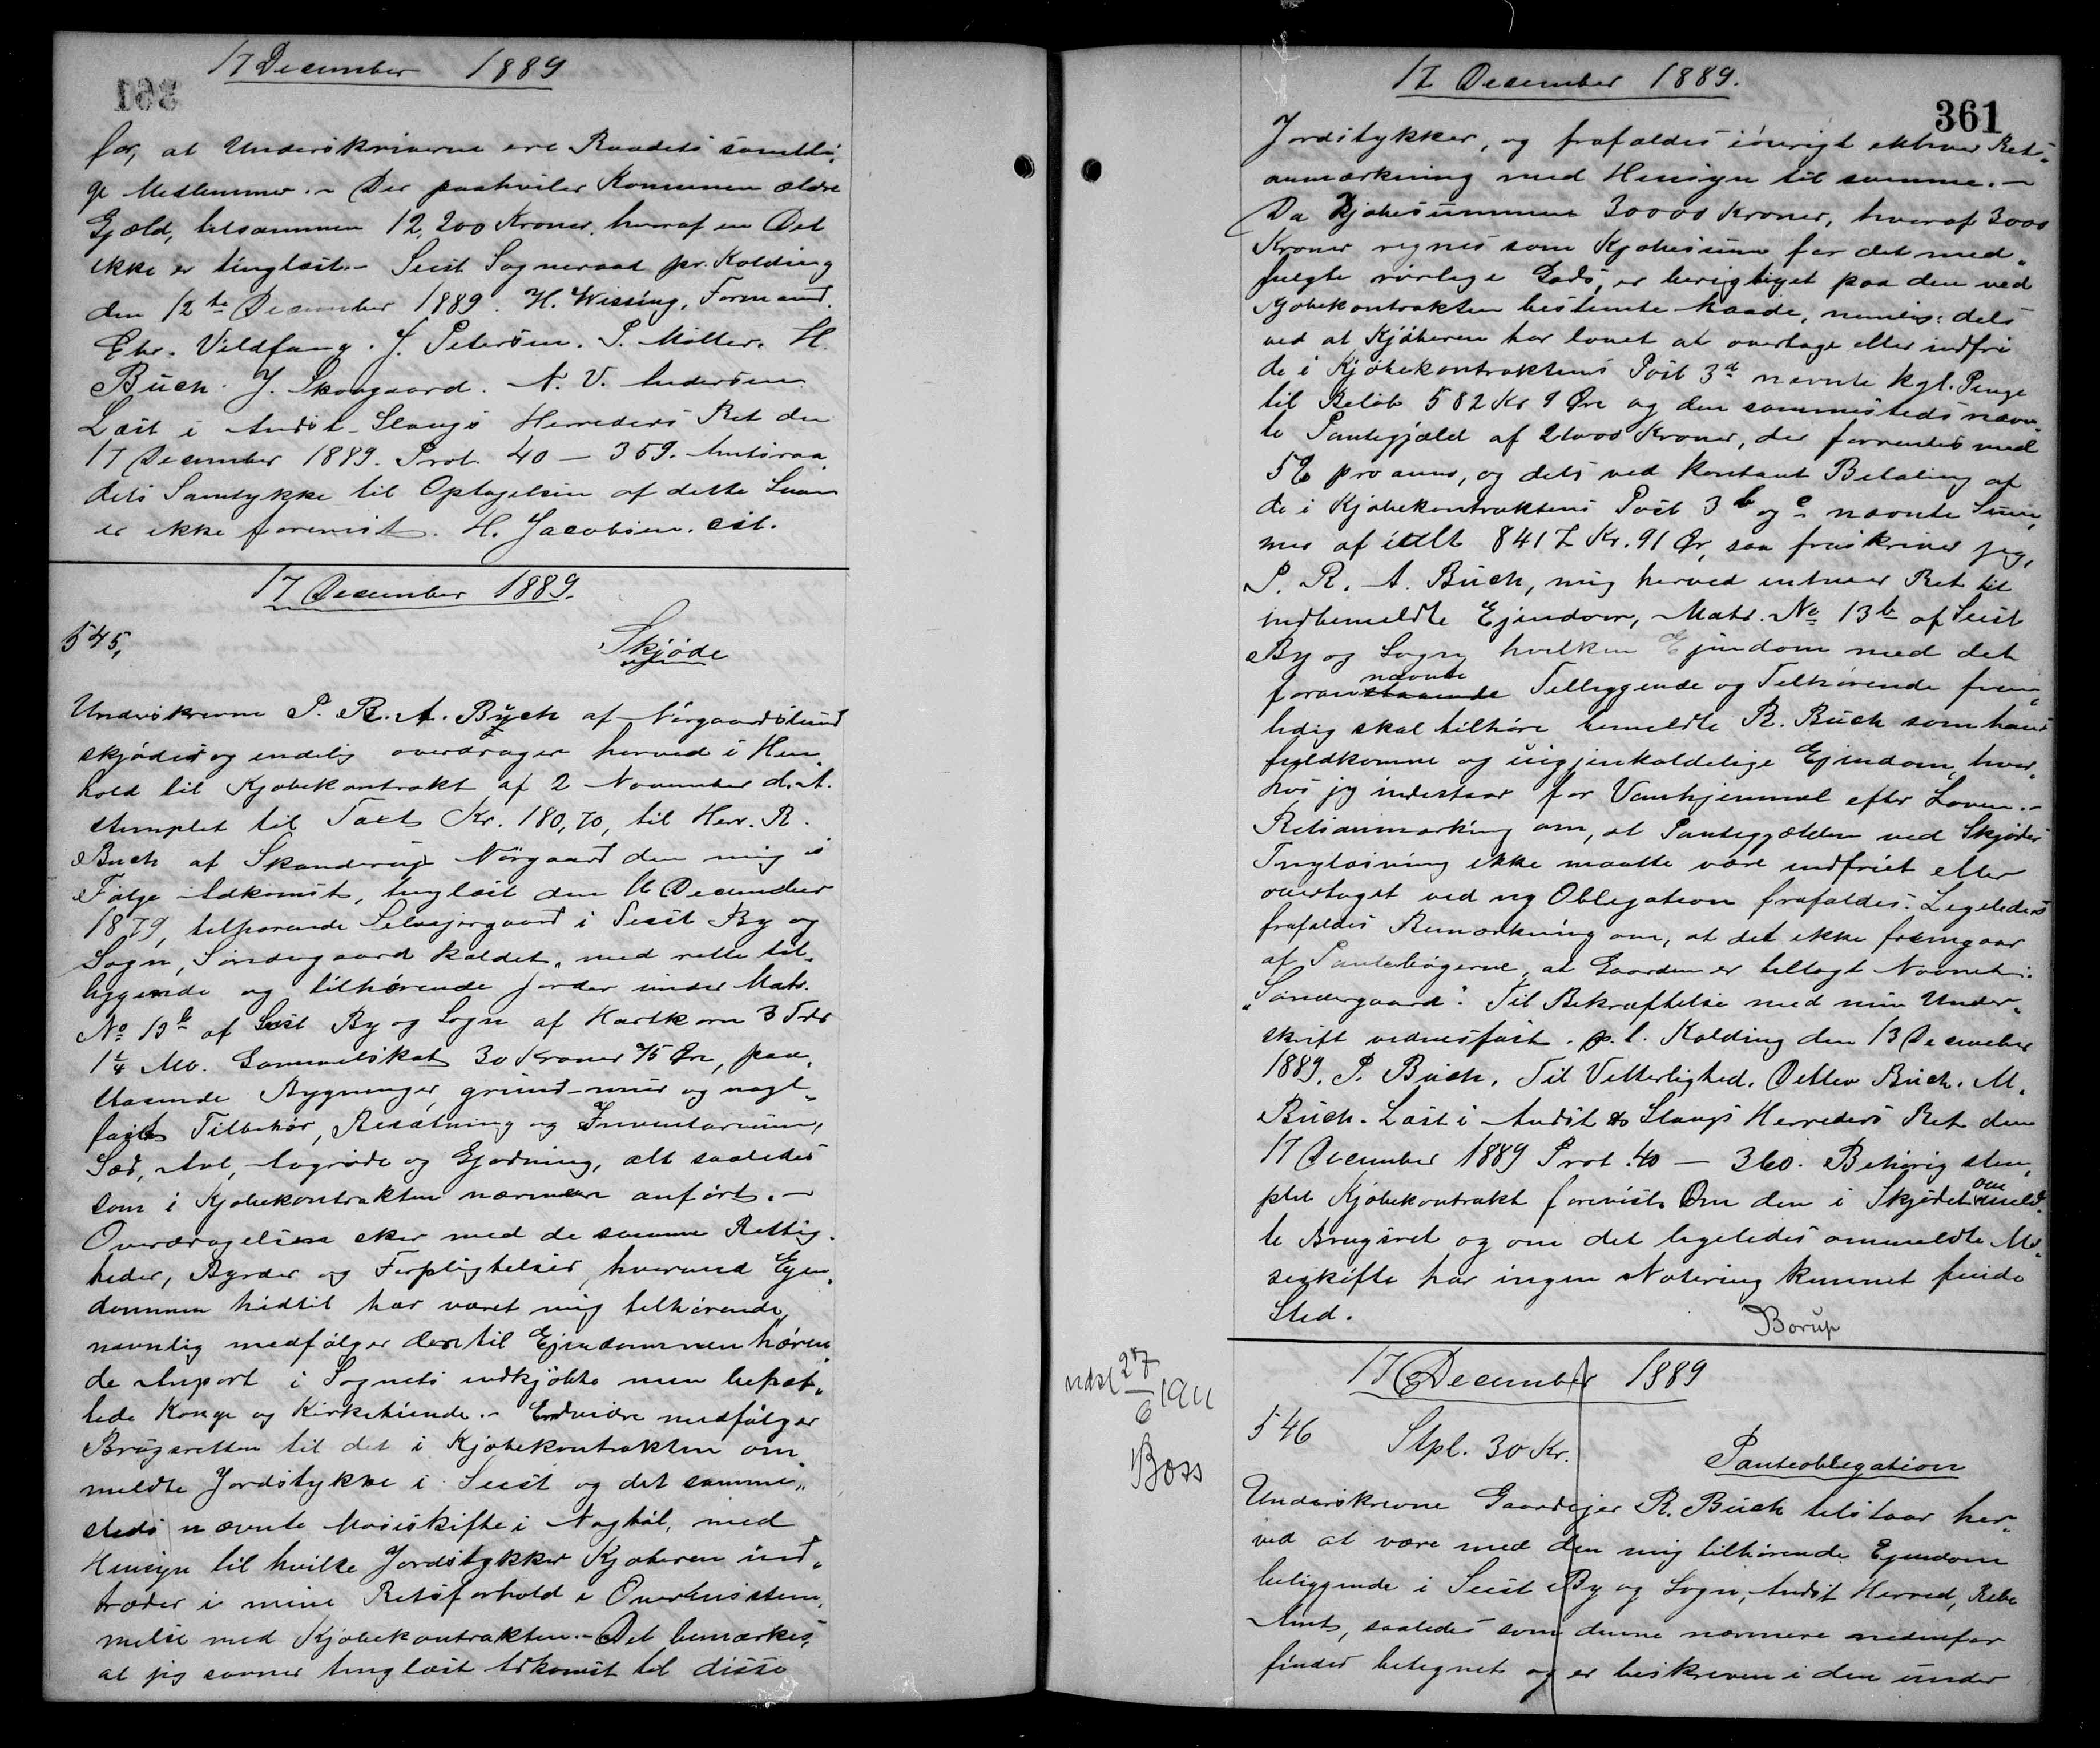 17 December 1889
for, at Underskriverne ere Raadets samtli-
ge Medlemmer. - Der paahviler Komunen ældre
Gjæld, tilsammen 12,200 Kroner, hvoraf en Del
ikke er tinglæst. - Seist Sogneraad pr. Kolding
den 12te December 1889. H. Wissing, Formand.
Chr. Vildfang. J. Petersen. P. Møller. H.
Buch. J. Skovgaard. N. V. Andersen.
Læst i Andst-Slaugs Herreders Ret den
17 December 1889. Prot. 40 - 359. Amtsraa-
dets Samtykke til Optagelsen af dette Laan
er ikke forevist. H. Jacobsen. cst.
17 December 1889.
545,
Skjøde
Underskrevne P. R. A. Buch af Nørgaardslund
skjøder og endelig overdrager herved i Hen-
hold til Kjøbekontrakt af 2 November d. A.
stemplet til Taxt Kr. 180,70, til Herr. R.
Buch af Skanderup Nørgaard den mig i
Følge Adkomst, tinglæst den 16 December
1879, tilhørende Selvejergaard i Seist By og
Sogn, Søndergaard kaldet, med rette til-
liggende og tilhørende Jorder under Matr.
No 13b af Seist By og Sogn af Hartkorn 3 Tdr
1¼ Alb. Gammelskat 30 Kroner 75 Øre, paa-
staaende Bygninger, grund- mur og nagl-
faste Tilbehør, Besætning og Inventarium,
Sæd, Avl, Avgrøde og Gjødning, alt saaledes
som i Kjøbekontrakten nærmere anført. -
Overdragelsen sker med de samme Rettig-
heder, Byrder og Forpligtelser, hvormed Ejen-
dommen hidtil har været mig tilhørende,
navnlig medfølger den til Ejendommen høren-
de Anpart i Sognets indkjøbte men behæf-
tede Konge og Kirketiende. - Endvidre medfølger
Brugsretten til det i Kjøbekontrakten om-
meldte Jordstykke i Seist og det samme-
steds nævnte Moseskifte i Nagbøl, med
Hensyn til hvilke Jordstykker Kjøberen ind-
træder i mine Retsforhold i Overensstem-
melse med Kjøbekontrakten. - Det bemærkes,
at jeg savner tinglæst Adkomst til disse
17 December 1889.
361
Jordstykker, og frafaldes iøvrigt enhver Rets-
anmærkning med Hensyn til samme. -
Da Kjøbesummen 30000 Kroner, hvoraf 3000
Kroner regnes som Kjøbesum for det med-
fulgte rørlige Gods, er berigtiget paa den ved
Kjøbekontrakten bestemte Maade, nemlig: dels
ved at Kjøberen har lovet at overtage eller indfri
de i Kjøbekontraktens Post 3d nævnte kgl. Penge
til Beløb 582 Kr 9 Øre og den sammesteds nævn-
te Pantegjæld af 21000 Kroner, der forrentes med
5% pro anno, og dels ved kontant Betaling af
de i Kjøbekontraktens Post 3 b og c nævnte Sum-
mer af ialt 8417 Kr. 91 Ør, saa fraskriver jeg,
P. R. A. Buch, mig herved enhver Ret til
indbemeldte Ejendom, Matr. No 13b af Seist
By og Sogn hvilken Ejendom med det
nævnte
foranstaaende Tilliggende og Tilhørende frem-
tidig skal tilhøre bemeldte R. Buch som hans
fuldkomne og uigjenkaldelige Ejendom, hver-
hos jeg indestaar for Vanhjemmel efter Loven. -
Retsanmærkning om, at Pantegjælden ved Skjødets
Tinglæsning ikke maatte være indfriet eller
overtaget ved ny Obligation frafaldes. Ligeledes
frafaldes Bemærkning om, at det ikke fremgaar
af Pantebøgerne, at Gaarden er tillagt Navnet:
"Søndergaard". Til Bekræftelse med min Under-
skrift vidnesfast. p. t. Kolding den 13 December
1889. P. Buch. Til Vitterlighed. Detlev Buch. M.
Buch. Læst i Andst & Slaugs Herreders Ret den
17 December 1889 Prot. 40 - 360. Behørig stem-
plet Kjøbekontrakt forevist. Om den i Skjødet ommeld-
te Brugsret og om det ligeledes ommeldte Mo-
seskifte har ingen Notering kunnet finde
Sted.
Borup
17 December 1889
udsl 27/6 1911
Boss
546
Stpl. 30 Kr.
Panteobligation
Underskrevne Gaardejer R. Buch tilstaar her-
ved at være med den mig tilhørende Ejendom
beliggende i Seist By og Sogn, Andst Herred, Ribe
Amt, saaledes som denne nærmere nedenfor
findes betegnet og er beskreven i den under
361